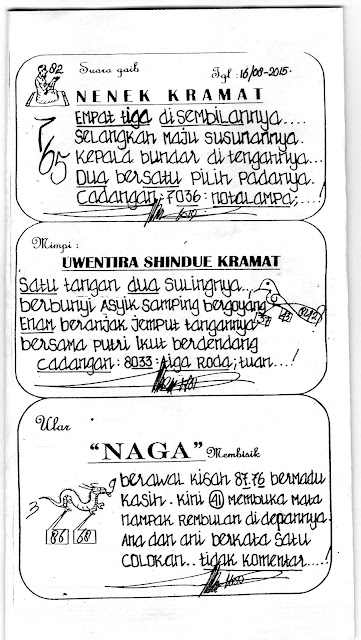 82 Suara gaib Tgl : 16/08-2015.
NENEK KRAMAT
EMPAT tiga disembilannya.....
selangkah maju susunannya.
765
kepala bundar ditengahnya...
Dua bersatu pilih padanya.
Cadangan : 7036 : notalampa;....!
Mimpi :
UWENTIRA SHINDUE KRAMAT
Satu tangan dua sulingnya..
berbunyi Asyik samping bergoyang
Enam beranjak jemput tangannya
bersama putri ikut berdendang
Cadangan : 8033 : tiga Roda; tuan...!
Ular
"NAGA" Membisik
berawal kisah 87.76 bermadu
kasih. kini 41 membuka mata
3
nampak rembulan didepannya.
86 68
Ana dan ani berkata satu
COLOKAN.. tidak komentar....!